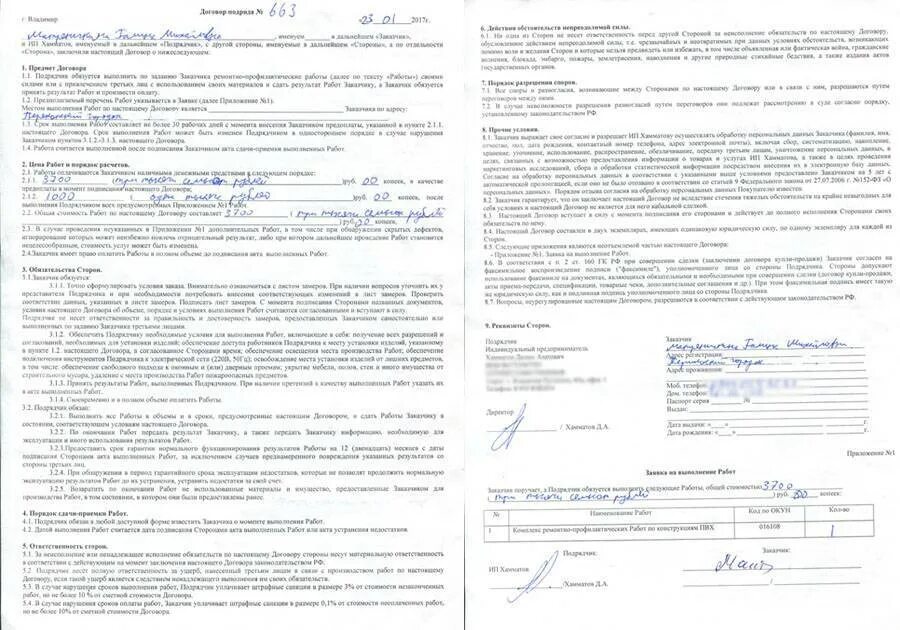 Договор подряда № 663
г. Владимир
23.01 2017г.
, именуем в дальнейшем «Заказчик»,
и ИП Хамматов, именуемый в дальнейшем «Подрядчик», с другой стороны, именуемые в дальнейшем «Стороны», а по отдельности
«Сторона», заключили настоящий Договор о нижеследующем:
1. Предмет Договора
1.1. Подрядчик обязуется выполнить по заданию Заказчика ремонтно-профилактические работы (далее по тексту «Работы») своими
силами или с привлечением третьих лиц с использованием своих материалов и сдать результат Работ Заказчику, а Заказчик обязуется
принять результат Работ и произвести оплату.
1.2. Предполагаемый перечень Работ указывается в Заявке (далее Приложение №1).
Местом выполнения Работ по настоящему Договору является Заказчика по адресу:
1.3. Срок выполнения Работ составляет не более 30 рабочих дней с момента внесения Заказчиком предоплаты, указанной в пункте 2.1.1.
настоящего Договора. Срок выполнения Работ может быть изменен Подрядчиком в одностороннем порядке в случае нарушения
Заказчиком пунктов 3.1.2.-3.1.3. настоящего Договора.
1.4. Работа считается выполненной после подписания Заказчиком акта сдачи-приемки выполненных Работ.
2. Цена Работ и порядок расчетов.
2.1. Работы оплачиваются Заказчиком наличными денежными средствами в следующем порядке:
2.1.1. 3700 (три тысячи семьсот рублей) руб. 00 коп., в качестве
предоплаты в момент подписания настоящего Договора;
2.1.2. 1000 руб. 00 коп., после
выполнения Подрядчиком всех предусмотренных Приложением №1 Работ.
2.2. Общая стоимость Работ по настоящему Договору составляет 3700 (три тысячи семьсот рублей
) руб. 00 копеек,
2.3. В случае проведения неуказанных в Приложении №1 дополнительных Работ, в том числе при обнаружении скрытых дефектов,
игнорирование которых может неизбежно повлечь отрицательный результат, либо при котором дальнейшее проведение Работ становится
нецелесообразным, стоимость услуг может быть изменена.
2.4.Заказчик имеет право оплатить Работы в полном объеме до подписания акта выполненных Работ.
3. Обязательства Сторон.
3.1.Заказчик обязуется:
3.1.1. Точно сформулировать условия заказа. Внимательно ознакомиться с листом замеров. При наличии вопросов уточнить их у
представителя Подрядчика и при необходимости потребовать внесения соответствующих изменений в лист замеров. Проверить
соответствие данных, указанных в листе замеров. Подписать лист замеров. С момента подписания Сторонами названных документов,
условия настоящего Договора об объеме, порядке и условиях выполнения Работ считаются согласованными и вступают в силу.
Подрядчик не несет ответственности за правильность и достоверность замеров, предоставленных Заказчиком самостоятельно или
выполненных по заданию Заказчика третьими лицами.
3.1.2. Обеспечить Подрядчику необходимые условия для выполнения Работ, включающие в себя: получение всех разрешений и
согласований, необходимых для установки изделий; обеспечение доступа работников Подрядчика к месту установки изделий, указанному
в пункте 1.2. настоящего Договора, в согласованное Сторонами время; обеспечение освещения места производства Работ; обеспечение
подключения инструментов Подрядчика к электрической сети (220В, 50Гц); освобождение места установки изделий от лишних предметов,
в том числе обеспечение свободного подхода к оконным и (или) дверным проемам; укрытие мебели, полов, стен и иного имущества от
строительного мусора, удаление с места производства Работ источников опасности.
3.1.3. Принять результаты Работ, выполненных Подрядчиком. При наличии претензий к качеству выполненных Работ указать их
в акте выполненных Работ.
3.1.4. Своевременно и в полном объеме оплатить Работы.
3.2. Подрядчик обязан:
3.2.1. Выполнить все Работы в объемы и в сроки, предусмотренные настоящим Договором, и сдать Работы Заказчику в
состоянии, соответствующем условиям настоящего Договора.
3.2.2. По окончании Работ передать результат Заказчику, а также передать Заказчику информацию, необходимую для
эксплуатации и иного использования результатов Работ.
3.2.3.Предоставить срок гарантии нормального функционирования результатов Работ на 12 (двенадцать) месяцев с даты
подписания Сторонами акта выполненных Работ, за исключением случаев преднамеренного повреждения указанных результатов со
стороны третьих лиц.
3.2.4. При обнаружении в период гарантийного срока эксплуатации недостатков, которые не позволят продолжить нормальную
эксплуатацию результатов Работ до их устранения, устранить недостатки за свой счет.
3.2.5. Возвратить по окончании Работ не использованные материалы и имущество, предоставленные Заказчиком для
производства Работ, в том состоянии, в котором они были предоставлены ранее.
4. Порядок сдачи-приемки Работ.
4.1. Подрядчик обязан в любой доступной форме известить Заказчика о моменте выполнения Работ.
4.2. Датой выполнения Работ считается дата подписания Сторонами акта выполненных Работ или акта устранения недостатков.
5. Ответственность сторон.
5.1. За неисполнение или ненадлежащее исполнение обязательств по настоящему Договору стороны несут материальную ответственность
в соответствии с действующим на момент заключения настоящего Договора законодательством РФ.
5.2. Подрядчик несет полную ответственность за ущерб, нанесенный третьим лицам в связи с производством работ по настоящему
Договору, если такой ущерб является следствием ненадлежащего выполнения им своих обязательств.
5.3. В случае нарушения сроков выполнения Работ, Подрядчик уплачивает штрафные санкции в размере 3% от стоимости незаконченных
работ, но не более 10 % от сметной стоимости Договора.
5.4. В случае нарушения сроков оплаты Работ, Заказчик уплачивает штрафные санкции в размере 0,1% от стоимости неоплаченных работ,
но не более 10% от сметной стоимости Договора.
6. Действия обстоятельств непреодолимой силы.
6.1. Ни одна из Сторон не несет ответственность перед другой Стороной за неисполнение обязательств по настоящему Договору,
обусловленное действием непреодолимой силы, т.е. чрезвычайных и неотвратимых при данных условиях обстоятельств, возникающих
помимо воли и желания Сторон и которые нельзя предвидеть или избежать, в том числе объявленная или фактическая война, гражданские
волнения, блокада, эмбарго, пожары, землетрясения, наводнения и другие природные стихийные бедствия, а также издания актов
государственных органов.
7. Порядок разрешения споров.
7.1. Все споры и разногласия, возникающие между Сторонами по настоящему Договору или в связи с ним, разрешаются путем
переговоров между ними.
7.2. В случае невозможности разрешения разногласий путем переговоров они подлежат рассмотрению в суде согласно порядку,
установленному законодательством РФ.
8. Прочие условия.
8.1. Заказчик выражает свое согласие и разрешает ИП Хамматову осуществлять обработку персональных данных Заказчика (фамилия, имя,
отчество, пол, дата рождения, контактный номер телефона, адрес электронной почты), включая сбор, систематизацию, накопление,
хранение, уточнение, использование, распространение, обезличивание, передачу третьим лицам, уничтожение персональных данных, в
целях, связанных с возможностью предоставления информации о товарах и услугах ИП Хамматов, а также в целях проведения
маркетинговых исследований, сбора и обработки статистической информации посредством внесения их в электронную базу данных.
Согласие на обработку персональных данных в соответствии с указанными выше условиями предоставлено Заказчиком на 5 лет с
автоматической пролонгацией, если оно не было отозвано в соответствии со статьей 9 Федерального закона от 27.07.2006 №152-ФЗ «О
персональных данных». Порядок отзыва согласия на обработку персональных данных Покупателю известен.
8.2. Заказчик гарантирует, что он заключает настоящий Договор не вследствие стечения тяжелых обстоятельств на крайне невыгодных для
себя условиях и настоящий Договор не является для него кабальной сделкой.
8.3. Настоящий Договор вступает в силу с момента подписания его сторонами и действует до полного исполнения Сторонами своих
обязательств по нему.
8.4. Настоящий Договор составлен в двух экземплярах, имеющих одинаковую юридическую силу, по одному экземпляру для каждой из
Сторон.
8.5. Следующие приложения являются неотъемлемой частью настоящего Договора:
- Приложение №1. Заявка на выполнение Работ.
8.6. В соответствии с п. 2 ст. 160 ГК РФ при совершении сделки (заключении договора купли-продажи) Заказчик согласен на
факсимильное воспроизведение подписи ("факсимиле"), уполномоченного лица со стороны Подрядчика. Стороны допускают
использование факсимиле на документах, являющихся обязательными и необходимыми при совершении сделки (договор купли-продажи,
акты приема-передачи, спецификации, товарные чеки, дополнительные соглашения и др.). При этом факсимильная подпись имеет такую
же юридическую силу, как и подлинная подпись уполномоченного лица со стороны Подрядчика.
8.7. Вопросы, неурегулированные настоящим Договором, разрешаются в соответствии с действующим законодательством РФ.
9. Реквизиты Сторон.
Подрядчик
Индивидуальный предприниматель
Хамматов Денис
Директор
/ Хамматов Д.А.
Заказчик
Адрес регистрации:
Адрес проживания:
Моб. телефон:
Дом. телефон:
Паспорт серия №
Выдан:
Дата выдачи: « »
Дата рождения: « »
Приложение №1
Заявка на выполнение Работ
Заказчик поручает, а Подрядчик обязуется выполнить следующие Работы, общей стоимостью 3700
(три тысячи семьсот рублей) руб. 00 копеек:
№ Наименование Работ Код по ОКУН Кол-во
1 Комплекс ремонтно-профилактических Работ по конструкциям ПВХ 016108 1
Подрядчик:
Заказчик:
ИП Хамматов
/Хамматов Д.А.